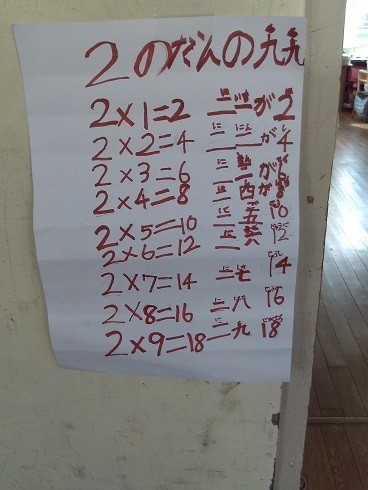 2のだんの九九
2×1=2 二一が2
2×2=4 二二が4
2×3=6 二 が
2×4=8 二 が
2×5=10 二五 10
2×6=12 二 12
2×7=14 二七 14
2×8=16 二八 16
2×9=18 二九 18